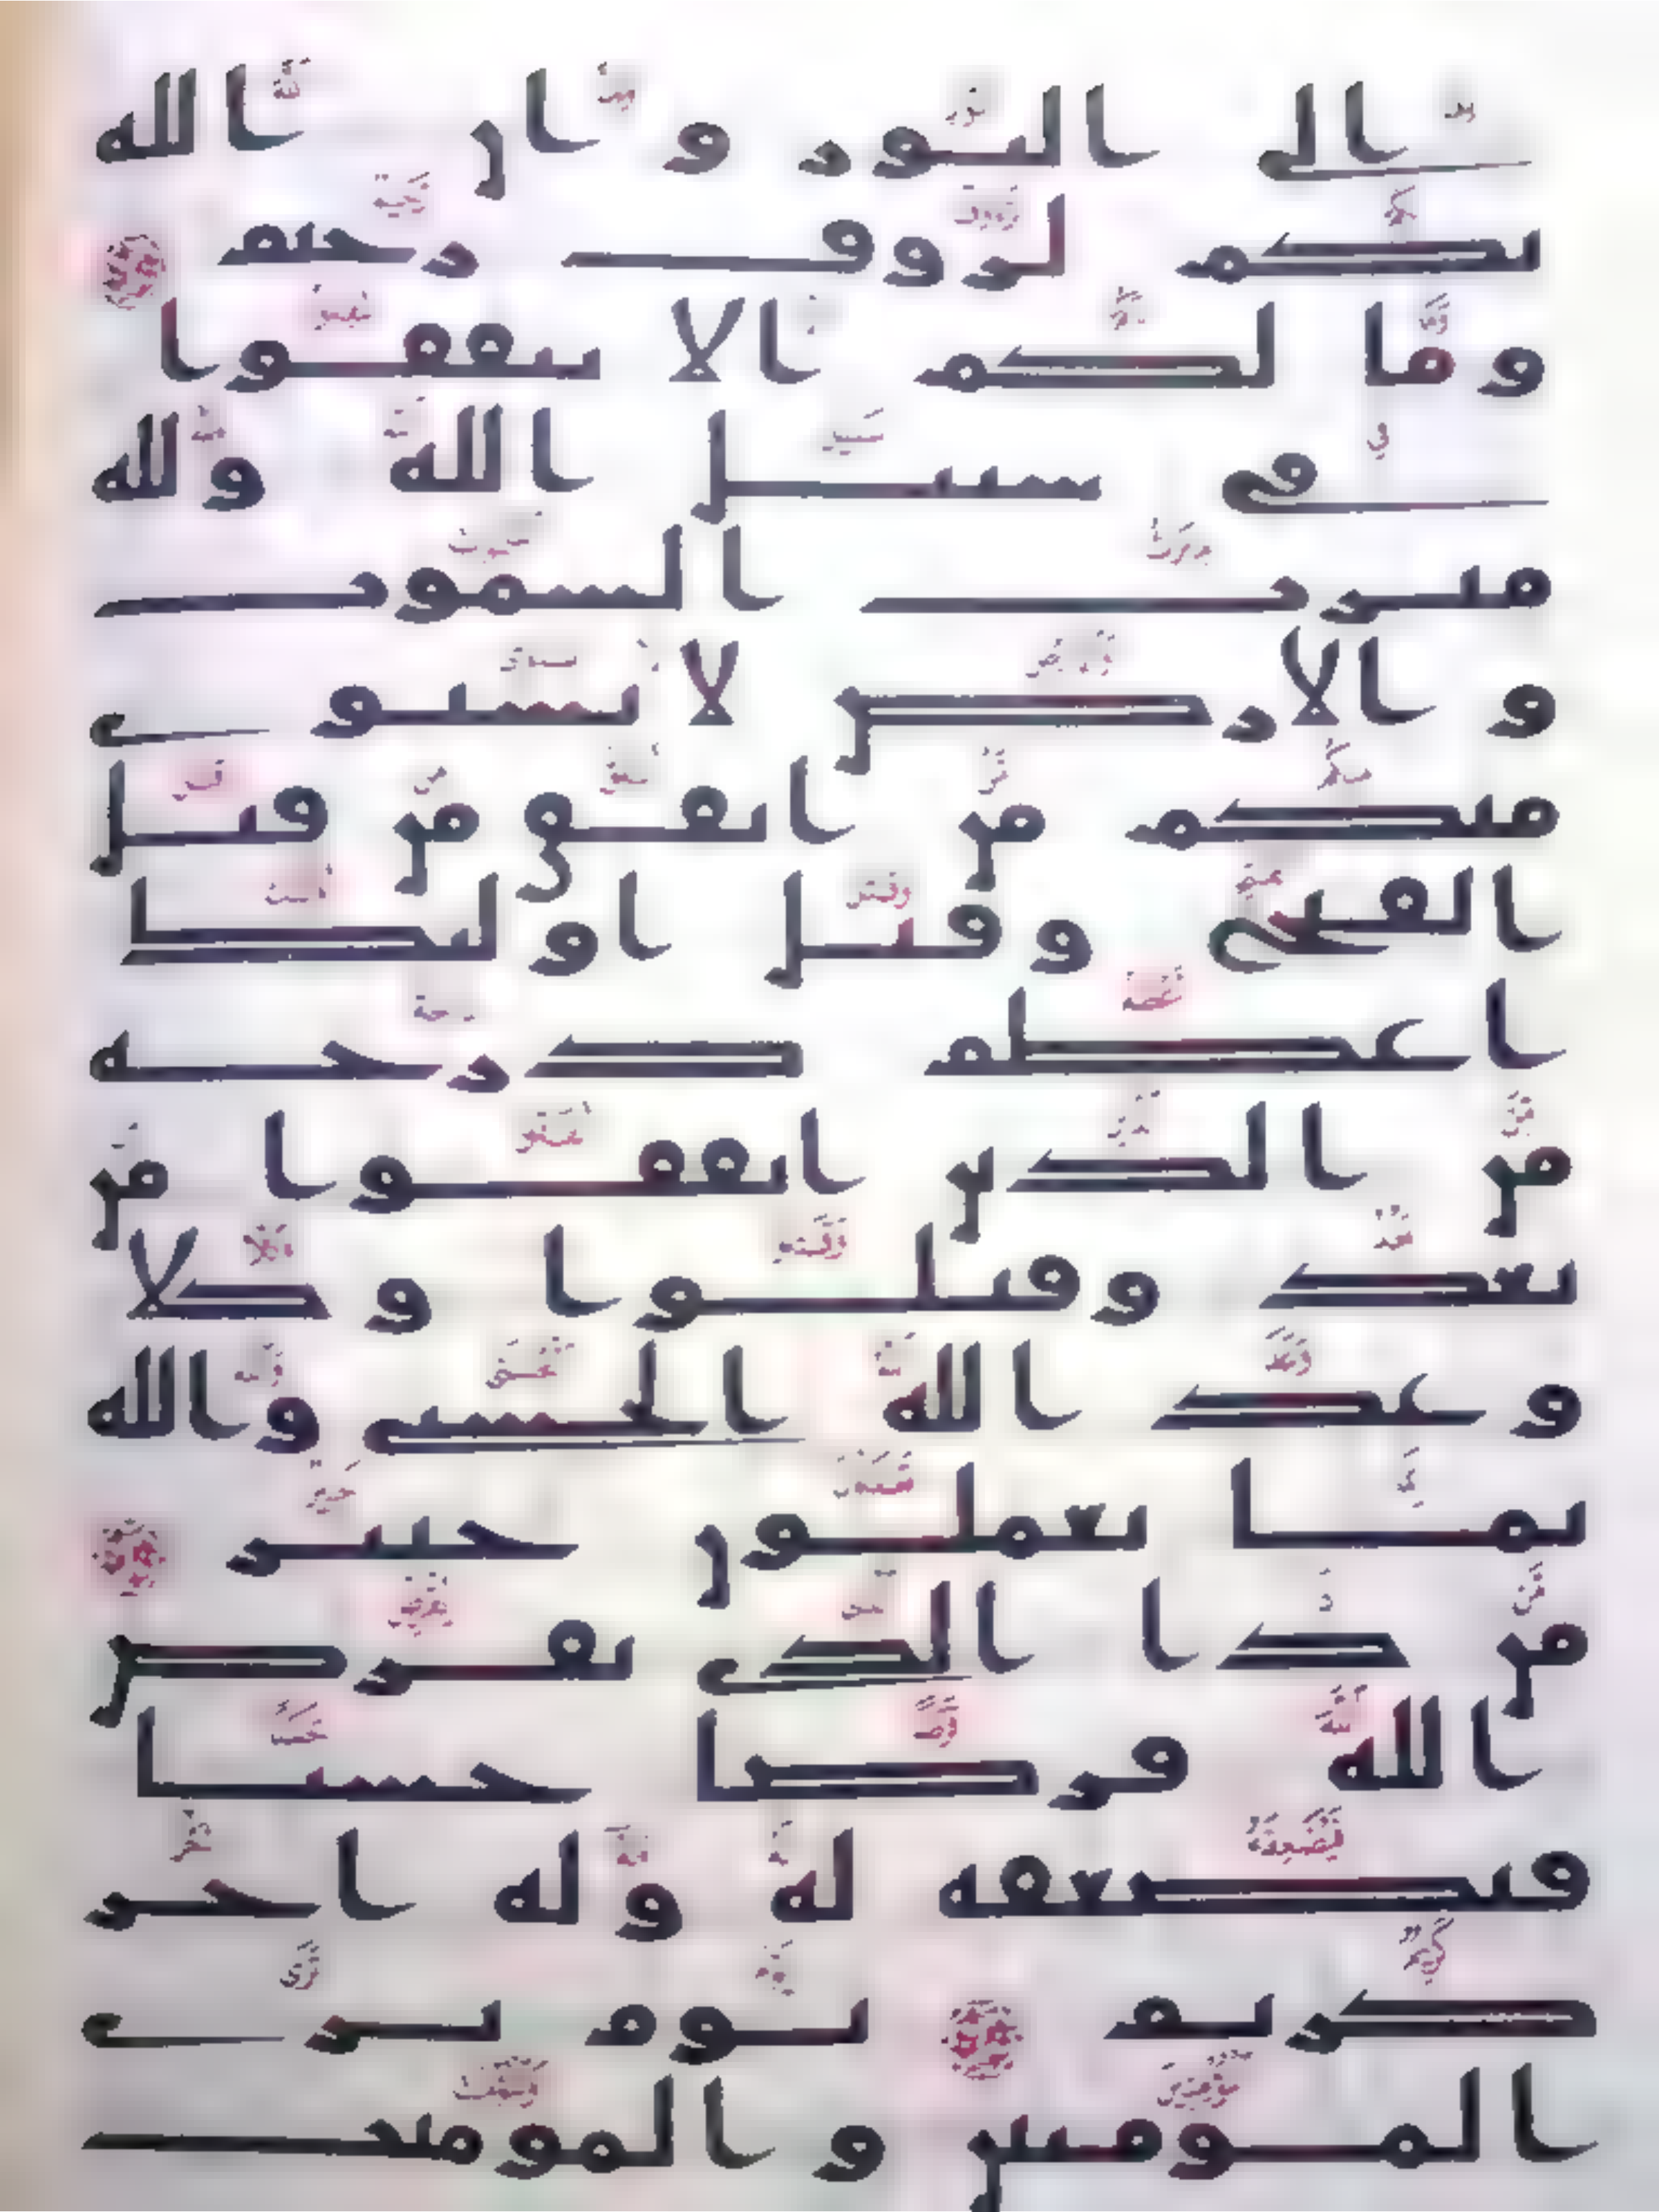 الى النور وان الله
بكم لروف رحيم
وما لكم الا تنفقوا
في سبيل الله ولله
ميرث السموت
و الارض لا يستوي
منكم من انفق من قبل
الفتح وقتل اوليك
اعظم درجة
من الذين انفقوا من
بعد وقتلوا وكلا
وعد الله الحسنى والله
بما تعملون خبير
من ذا الذي يقرض
الله قرضا حسنا
فيضعفه له وله اجر
كريم يوم ترى
المومنين والمومنت